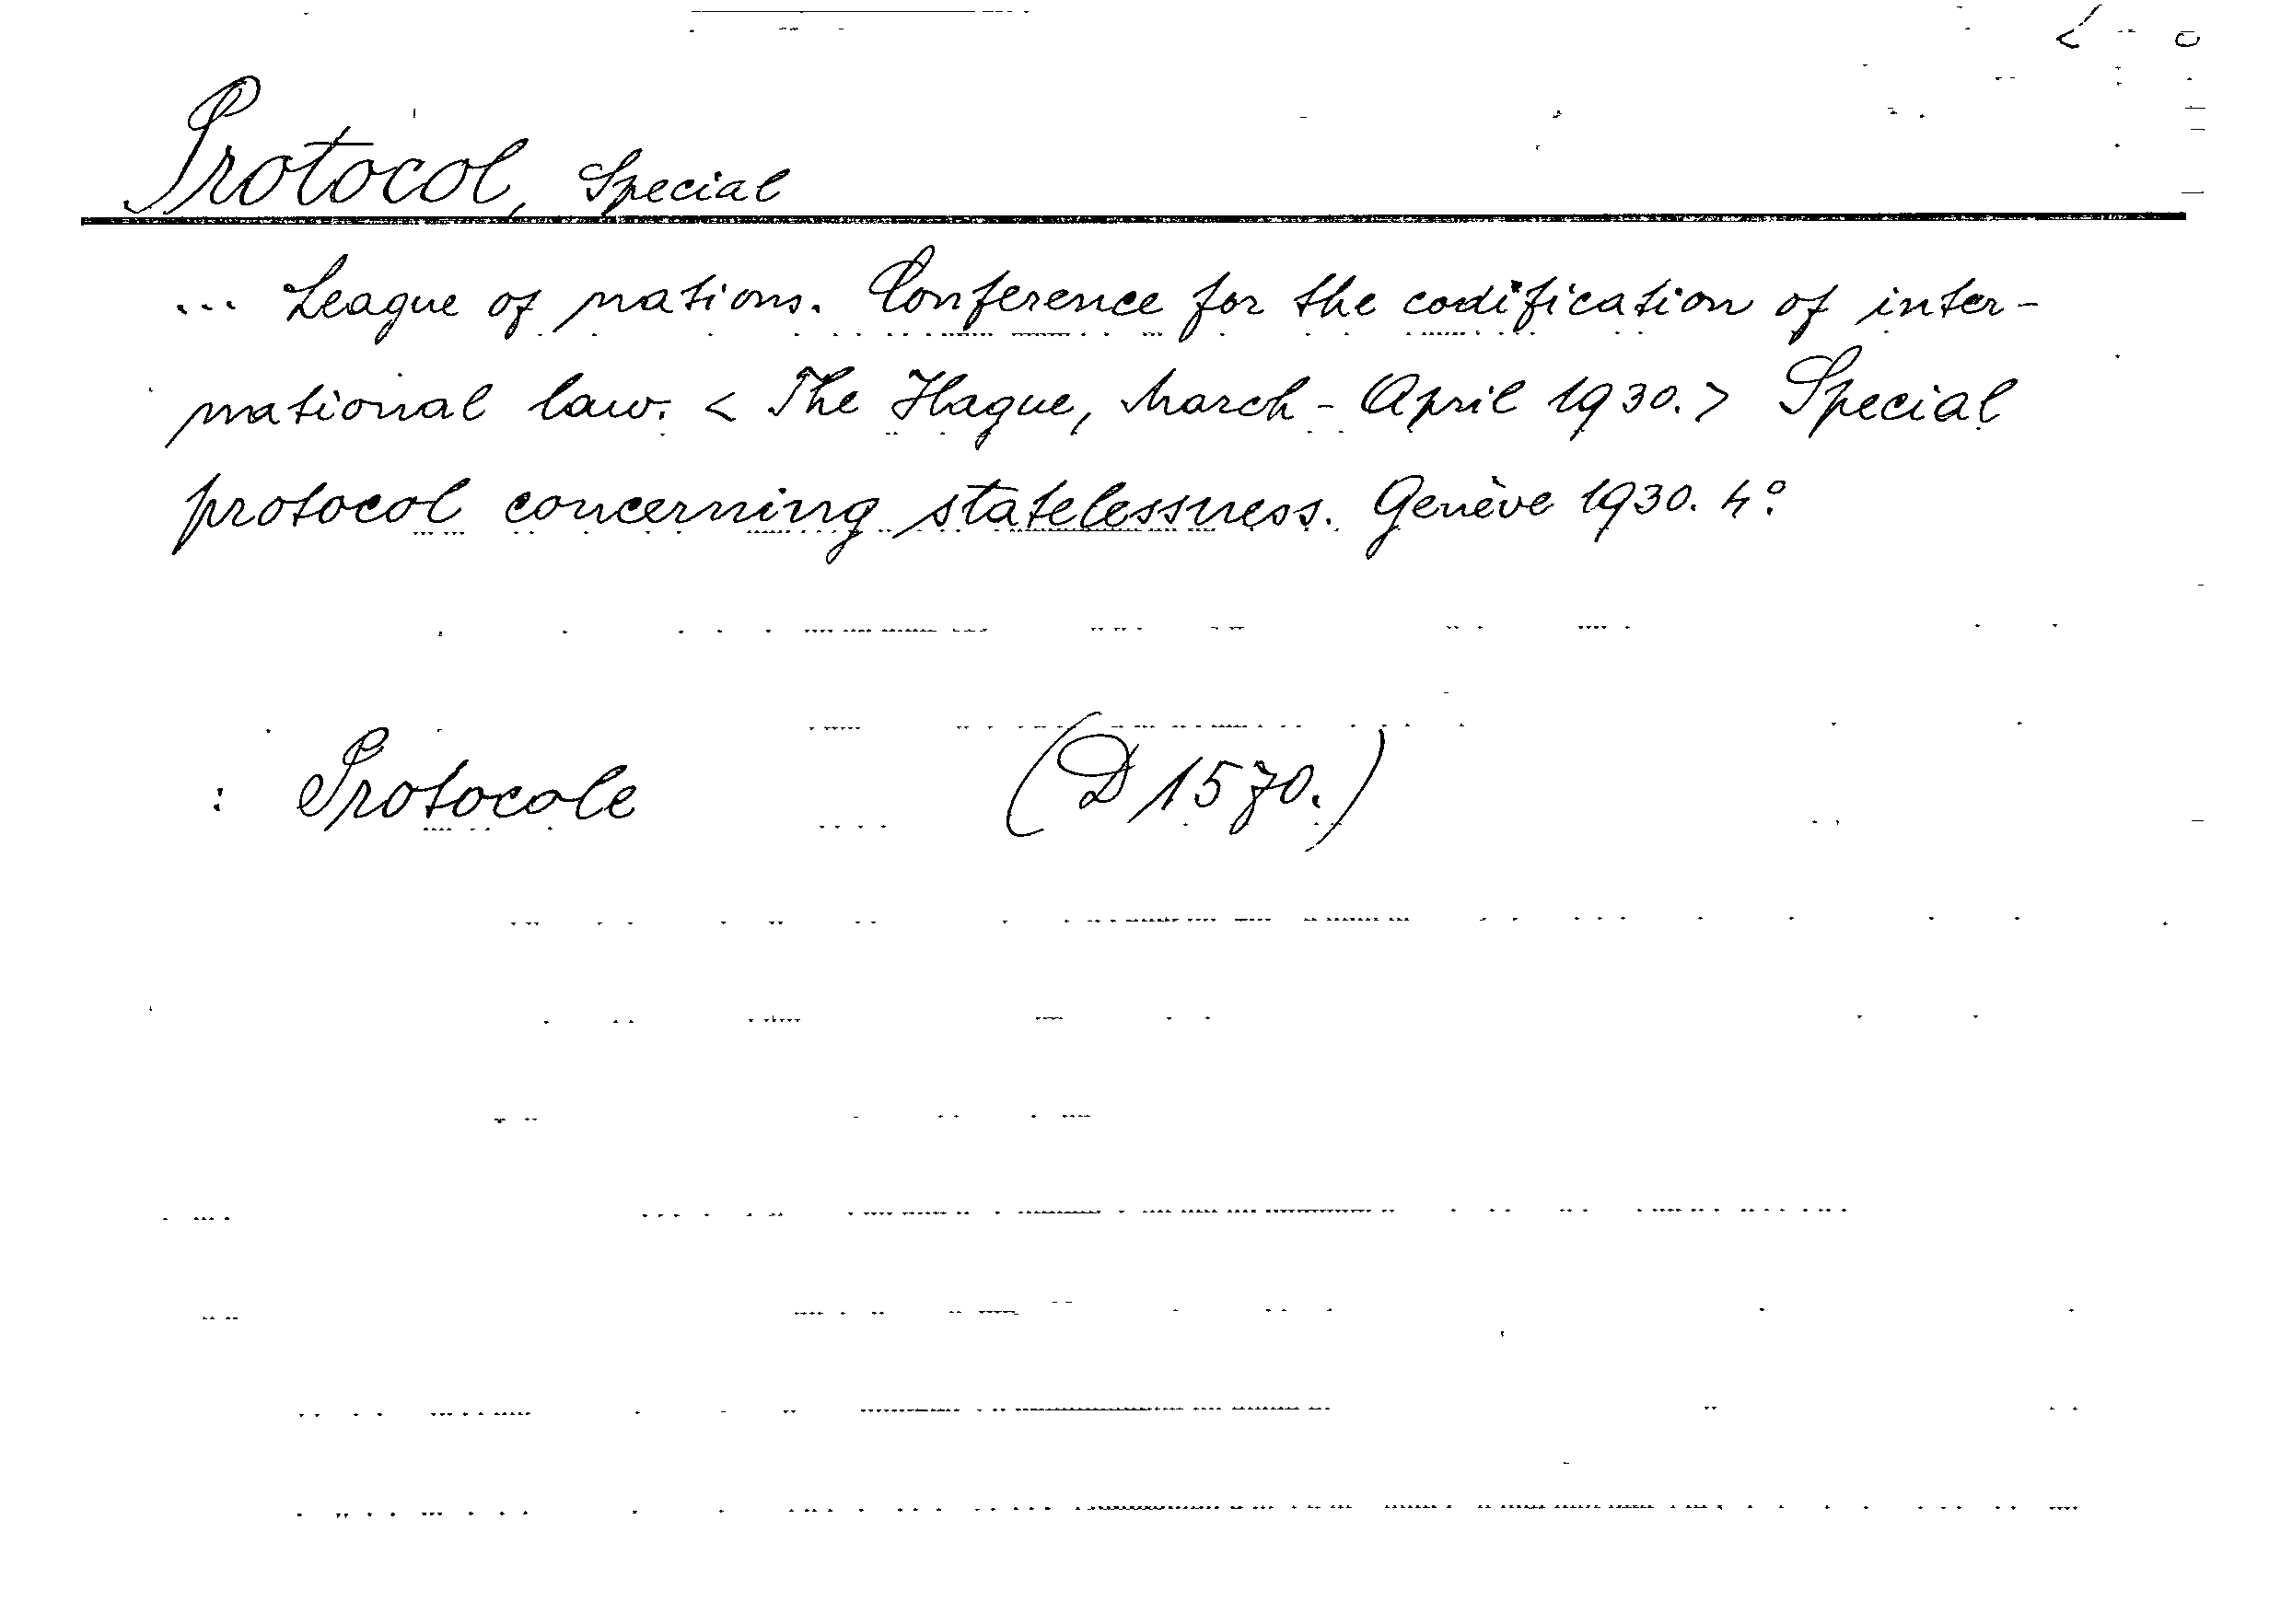 Protocol, Special
... League of nations. Conference for the codification of inter-
national law. < The Hague, March - April 1930. > Special
protocol concerning statelessness. Genève 1930. 4°.
: Protocole (D 1570.)